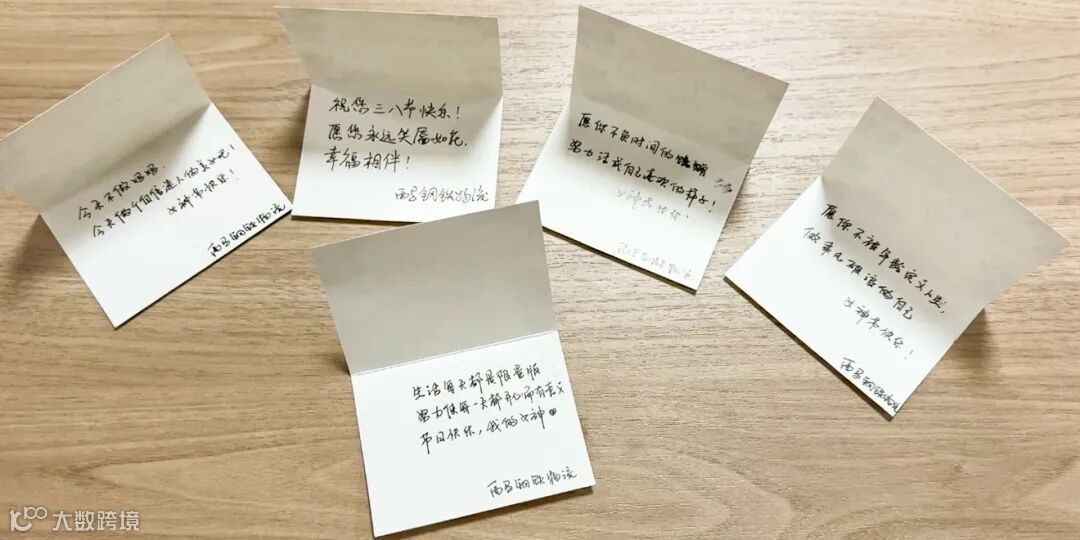 今天不做妈妈
今天做个自信迷人的美女吧!
女神节快乐!
西昌钢铁物流
祝您三八节快乐!
愿您永远笑靥如花,
幸福相伴!
西昌钢铁物流
愿你不负时间的
努力活成自己喜欢的样子!
女神节快乐!
西昌钢铁物流
愿你不被年龄定义人生,
做乘风破浪的自己
女神节快乐!
西昌钢铁物流
生活每天都是限量版
努力使每一天都开心而有意义
节日快乐,我的女神
西昌钢铁物流
大数跨境